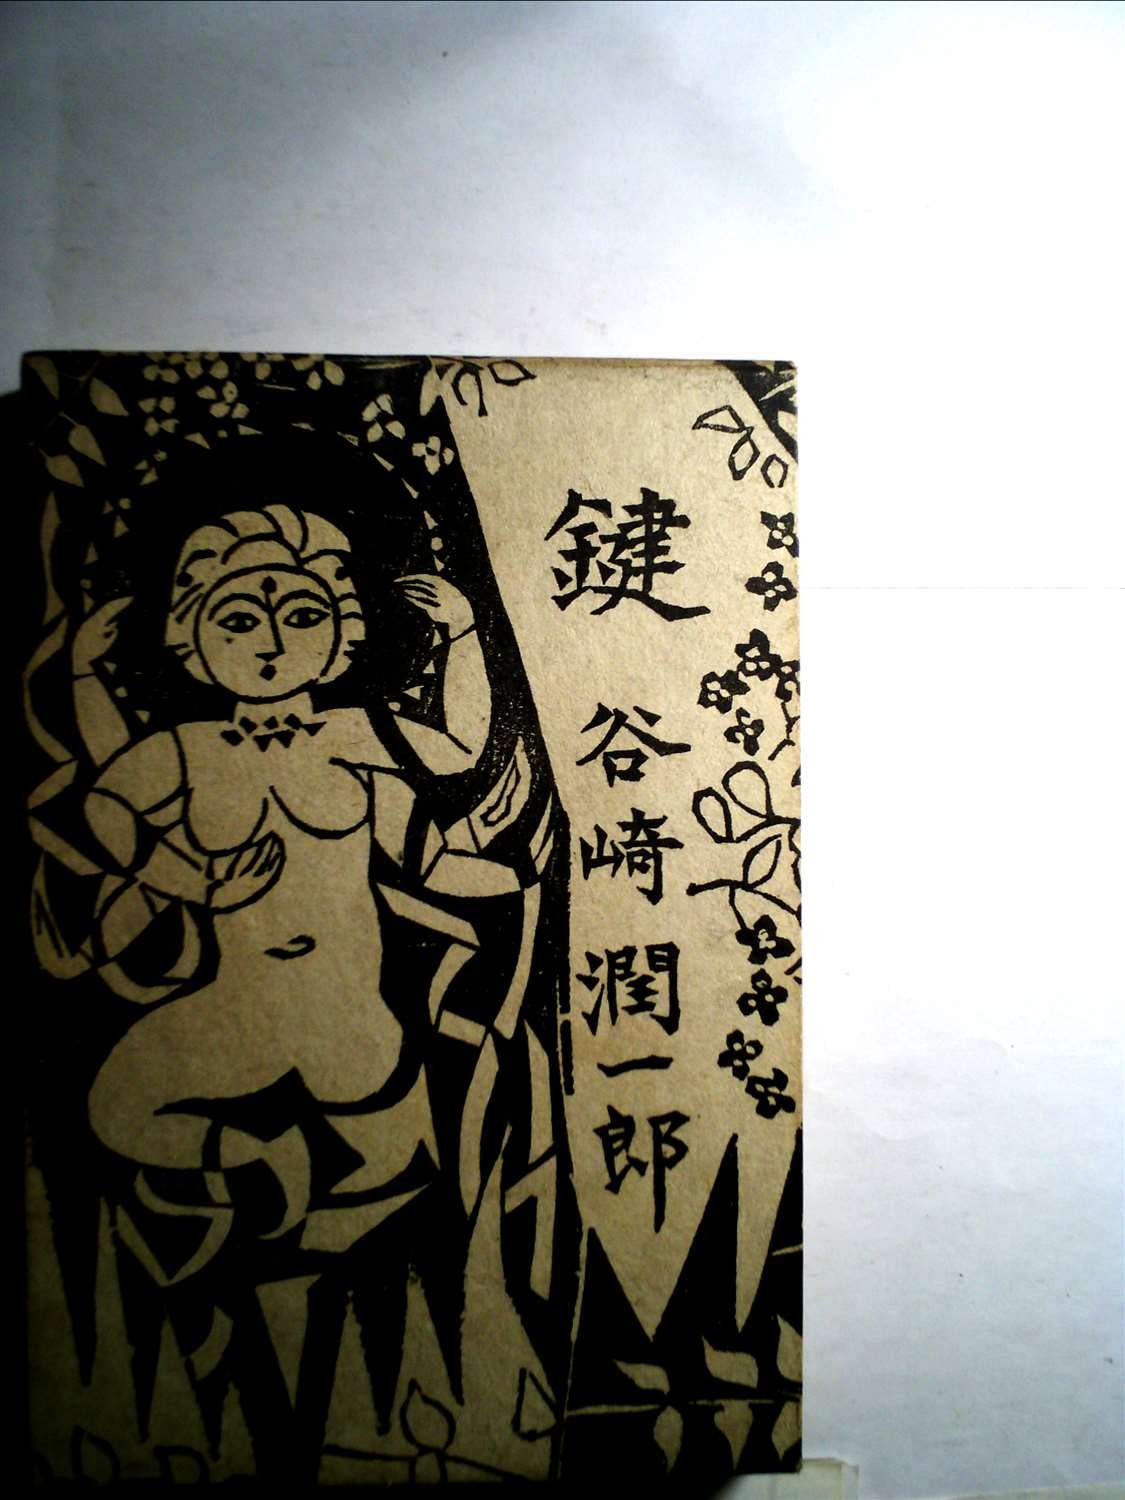 鍵
谷崎潤一郎